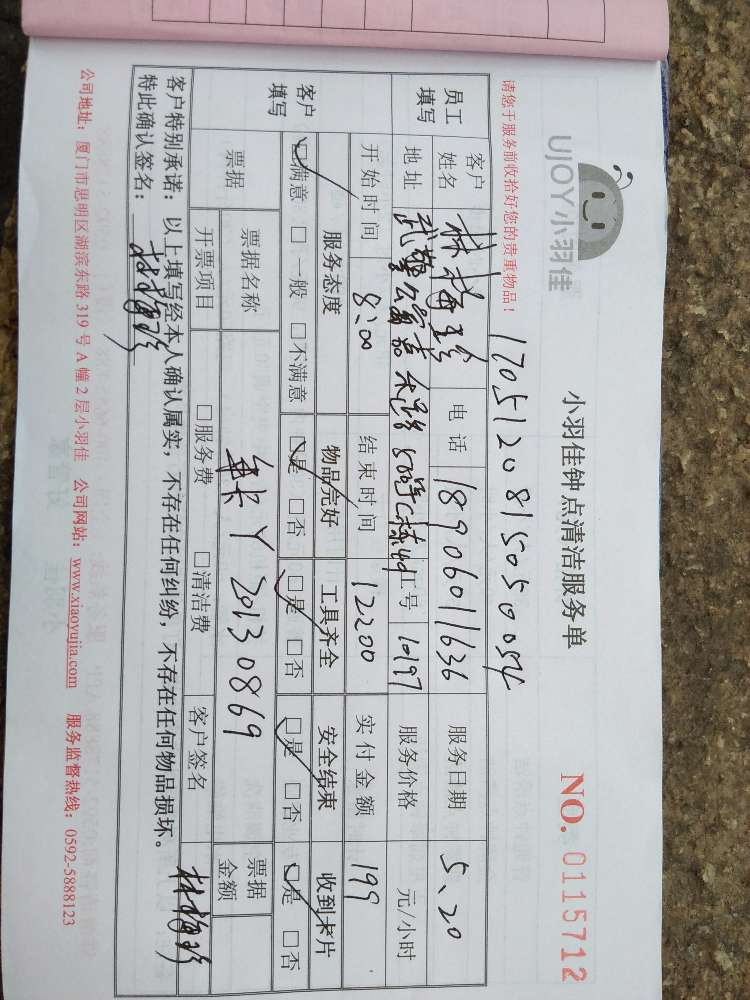 UJOY小羽佳
小羽佳钟点清洁服务单
NO. 0115712
170512081505050054
请您于服务前收拾好您的贵重物品！
员工填写 客户姓名 林梅珍 电话 18906011636 服务日期 5、20
地址 工号 10197 服务价格 元/小时
客户填写 开始时间 8:00 结束时间 12:00 实付金额 199
服务态度 物品完好 工具齐全 安全结束 收到卡片
☑满意 □一般 □不满意 ☑是 □否 ☑是 □否 ☑是 □否 ☑是 □否
票据 票据名称 年卡 Y20130869 票据金额
开票项目 □服务费 □清洁费 客户签名 林梅珍
客户特别承诺：以上填写经本人确认属实，不存在任何纠纷，不存在任何物品损坏。
特此确认签名：林梅珍
公司地址：厦门市思明区湖滨东路 319 号 A 幢 2 层小羽佳 公司网站：www.xiaoyujia.com 服务监督热线：0592-5888123